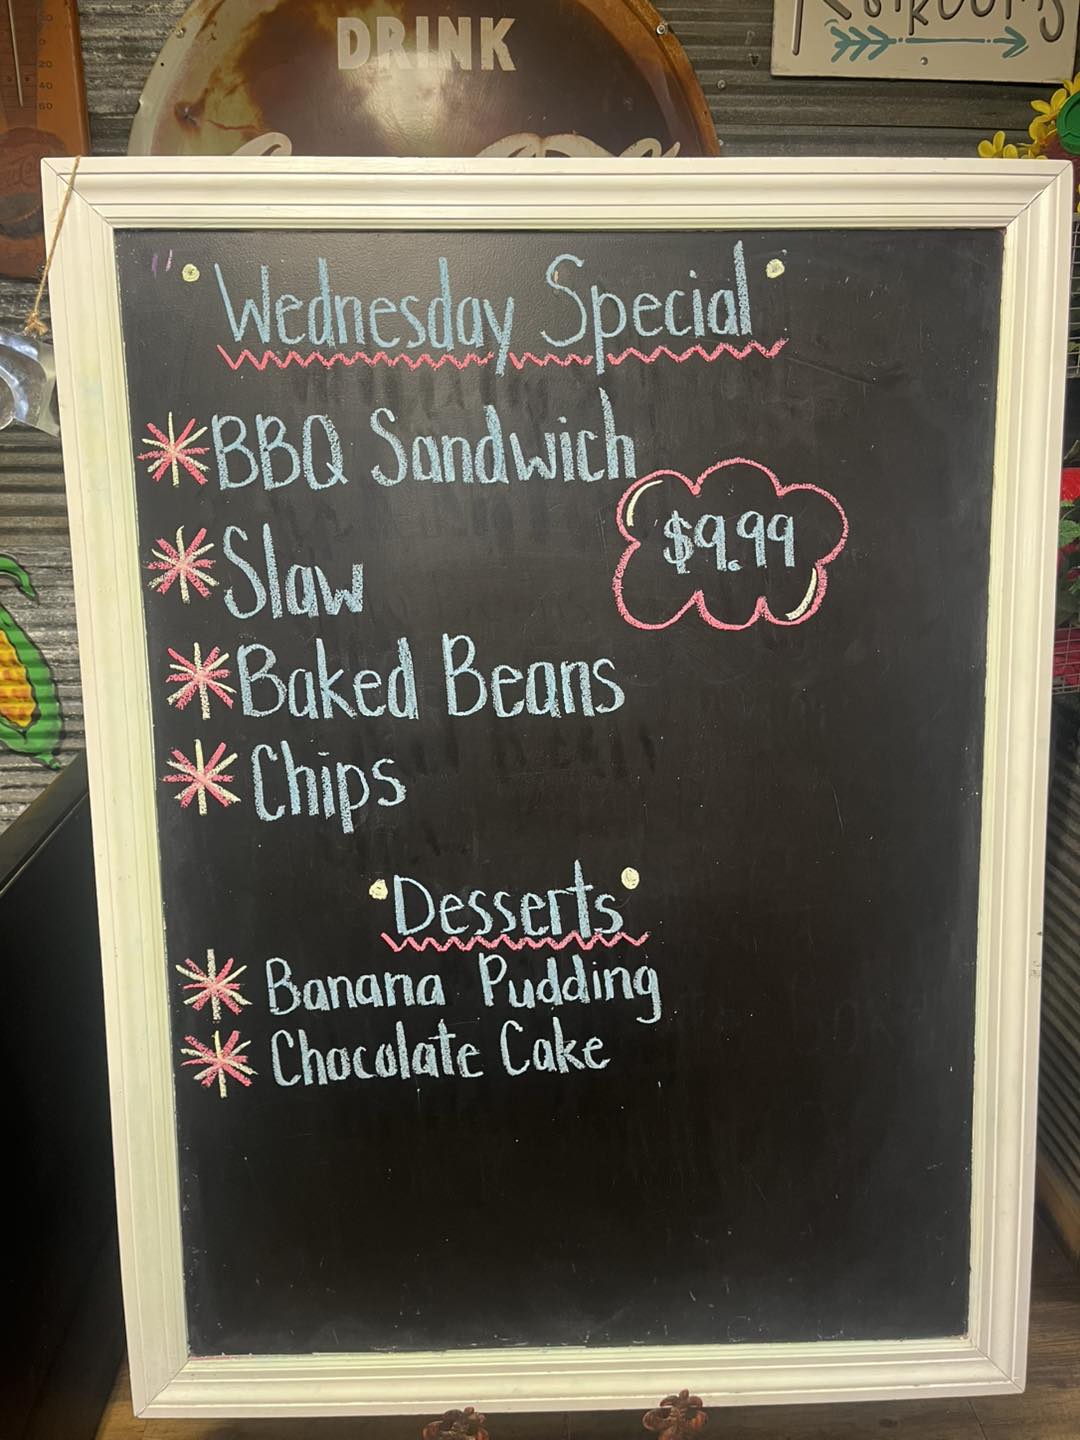 DRINK
Restrooms
20
40
60
" Wednesday Special
BBQ Sandwich
$9.99
Slaw
Baked Beans
Chips
Desserts
Banana Pudding
Chocolate Cake